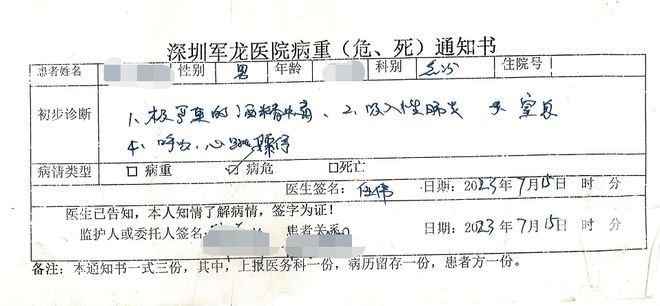 深圳军龙医院病重（危、死）通知书
患者姓名 性别 男 年龄 科别 急诊 住院号
初步诊断 1、极严重的酒精中毒、2、吸入性肺炎 3、窒息
4、呼吸、心跳骤停
病情类型 □ 病重 ☑ 病危 □死亡
医生签名：任伟 日期：2023年7月15日 时 分
医生已告知，本人知情了解病情，签字为证！
监护人或委托人签名： 患者关系 日期：2023年7月15日 时 分
备注：本通知书一式三份，其中，上报医务科一份，病历留存一份，患者方一份。